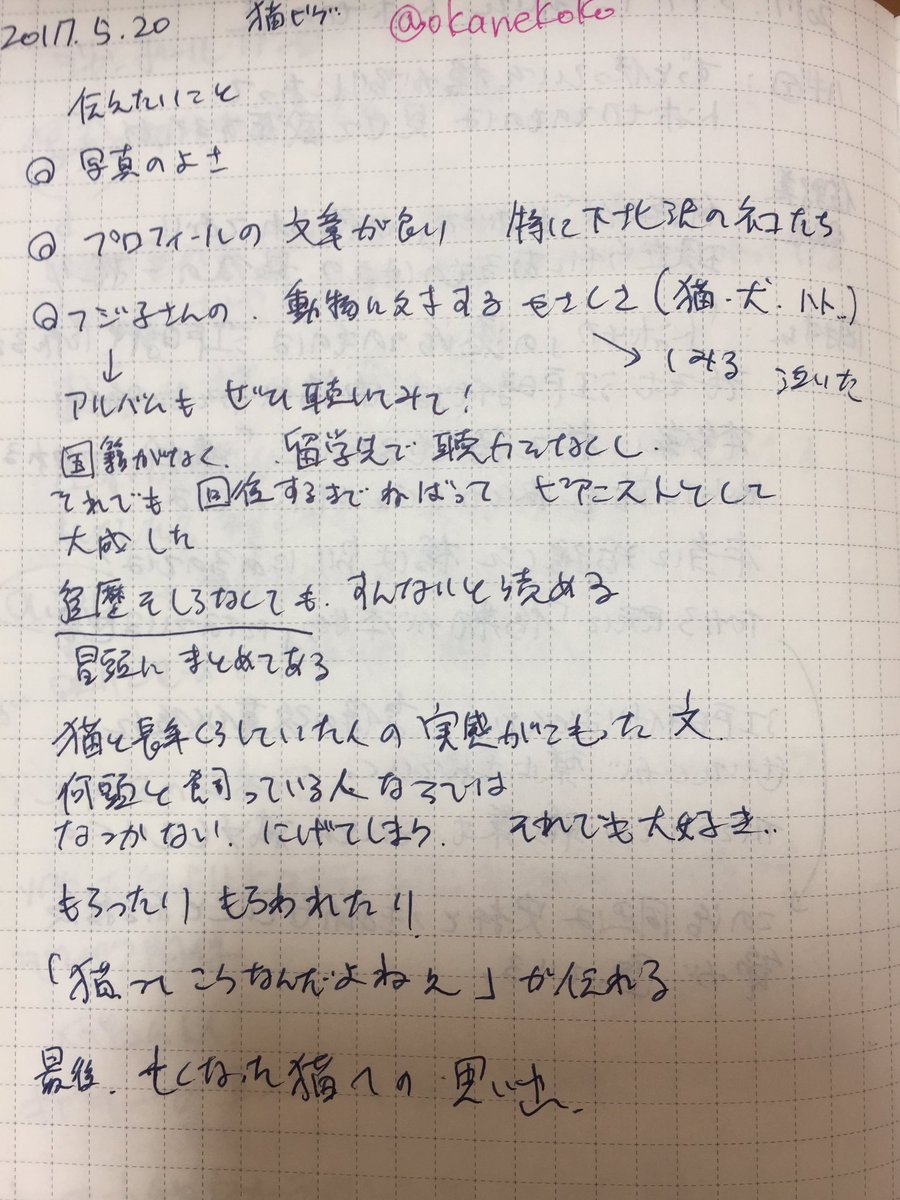 2017.5.20 猫ピア @okanekoko
伝えたいこと
写真のよさ
プロフィールの文章が良い 特に下北沢のネコたち
フジ子さんの、動物に対するやさしさ(猫・犬・ハト..)
↓ → しみる 泣いた
アルバムもぜひ聴いてみて!
国籍がなく、留学先で聴力をなくし、
それでも回復するまでねばってピアニストとして
大成した
経歴そしらなくても、すんなりと読める
冒頭にまとめてある
猫と長年くらしていた人の実感がこもった文、
何頭と飼っている人ならでは
なつかない、にげてしまう、それでも大好き..
もらったりもらわれたり
「猫ってこうなんだよねえ」が伝わる
最後、亡くなった猫への思い出、